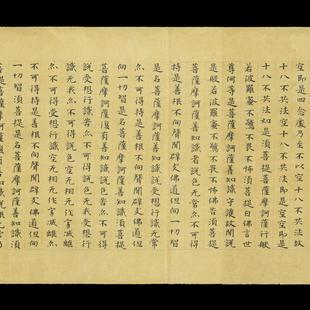 空即是四念處乃至不以空十八不共法故
十八不共法空十八不共法即是空空即是
十八不共法如是須菩提菩薩摩訶薩行般
若波羅蜜不驚不畏不怖須菩提白佛言世
尊何等是菩薩摩訶薩善知識守護故聞說
是般若波羅蜜不驚不畏不怖佛告須菩提
菩薩摩訶薩善知識者說色无常亦不可得
持是善根不向聲聞辟支佛道但向一切智
是名菩薩摩訶薩善知識說受想行識无常
亦不可得持是善根不向聲聞辟支佛道但
向一切智是名菩薩摩訶薩善知識須菩提
菩薩摩訶薩復有善知識說色苦亦不可得
說受想行識苦亦不可得說色无我受想行
識无我亦不可得說色空无相无作寂滅離
亦不可得受想行識空无相无作寂滅離亦
不可得持是善根不向聲聞辟支佛道但向
一切智須菩提是名菩薩摩訶薩善知識須